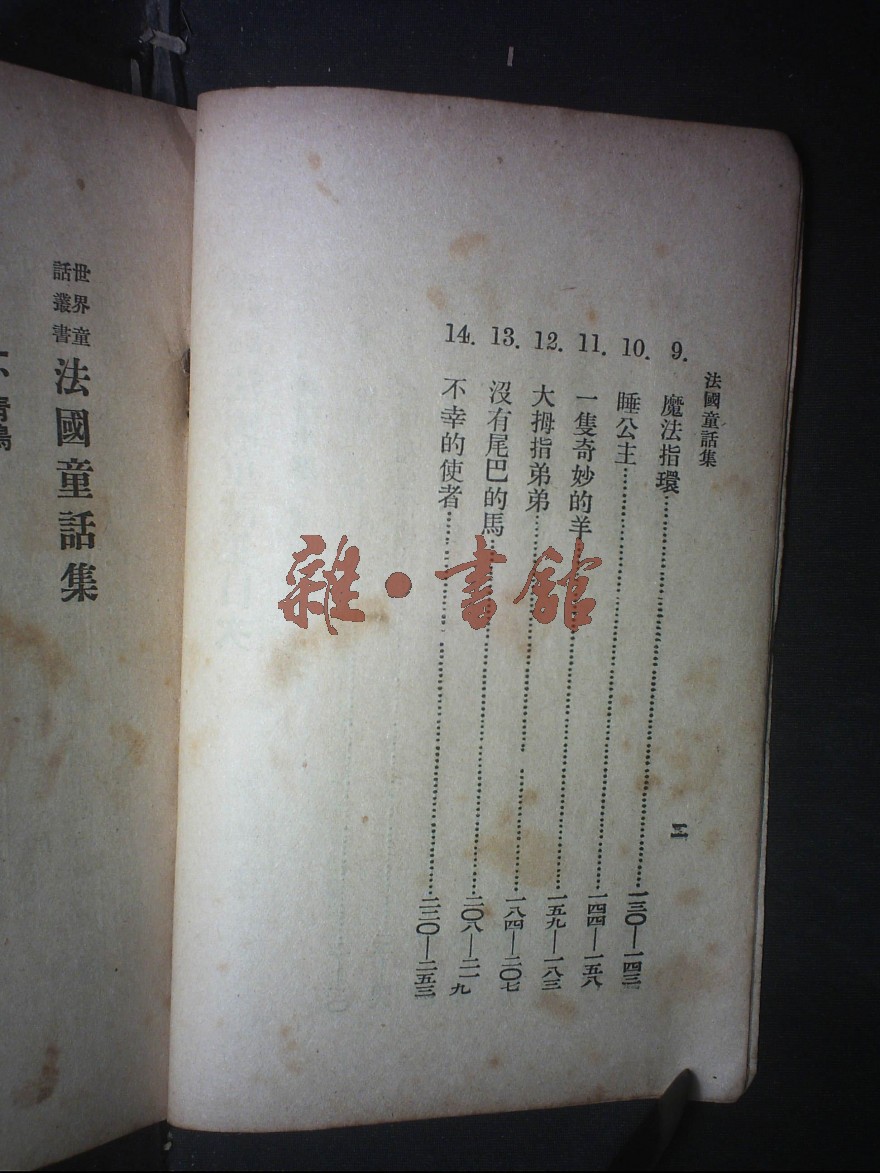 法國童話集
9. 魔法指環……一三〇—一四三
10. 睡公主……一四四—一五八
11. 一隻奇妙的羊……一五九—一八三
12. 大拇指弟弟……一八四—二〇七
13. 沒有尾巴的馬……二〇八—二一九
14. 不幸的使者……二二〇—二五三
雜·書館
世界童
話叢書
法國童話集